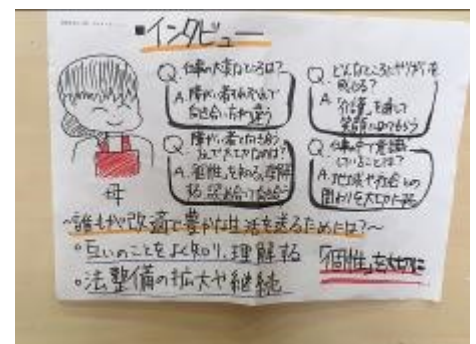 ■インタビュー
Q.仕事の大変なところは?
A.障がい者それぞれで
向き合い方が違う
Q.どんなところにやりがいを
感じる?
A.「介護」を通して
笑顔になってもらう
Q.障がい者と向き合う
A.「個性」を知る、理解
する、認め合って向き合う
Q.仕事中で意識
していることは?
A.地域や社会との
関わりを大切にする
母
~誰もが快適で豊かな生活を送るためには?~
○互いのことをよく知り、理解する
○法整備の拡大や継続
「個性」を大切に